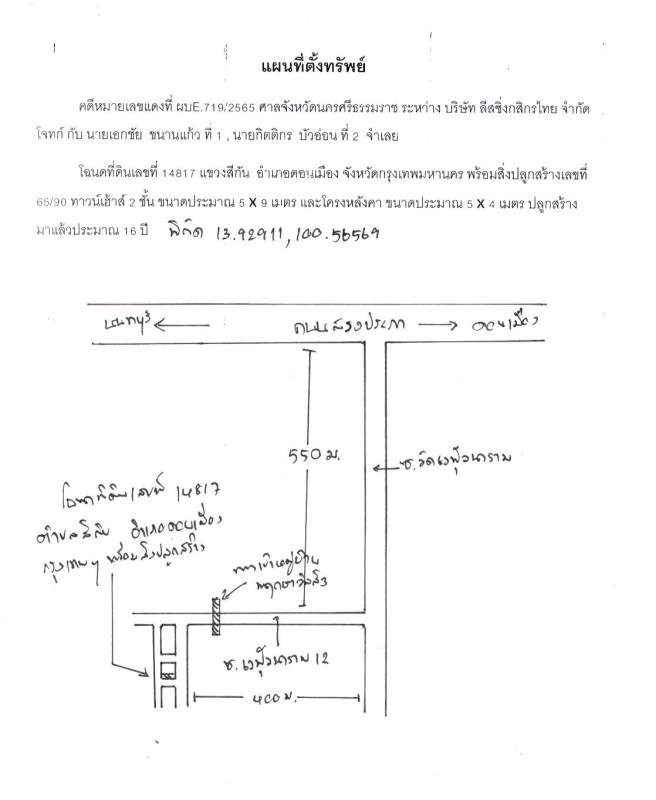 แผนที่ตั้งทรัพย์
คดีหมายเลขแดงที่ ผบE.719/2565 ศาลจังหวัดนครศรีธรรมราช ระหว่าง บริษัท ลีสซิ่งกสิกรไทย จำกัด
โจทก์ กับ นายเอกชัย ขนานแก้ว ที่ 1 , นายกิตติกร บัวอ่อน ที่ 2 จำเลย
โฉนดที่ดินเลขที่ 14817 แขวงสีกัน อำเภอดอนเมือง จังหวัดกรุงเทพมหานคร พร้อมสิ่งปลูกสร้างเลขที่
65/90 ทาวน์เฮ้าส์ 2 ชั้น ขนาดประมาณ 5 X 9 เมตร และโครงหลังคา ขนาดประมาณ 5 X 4 เมตร ปลูกสร้าง
มาแล้วประมาณ 16 ปี พิกัด 13.92911,100.56569
นนทบุรี
ถนนสรงประภา
ดอนเมือง
550 ม.
ซ.วัดเวฬุวนาราม
โฉนดที่ดินเลขที่ 14817
ตำบลสีกัน อำเภอดอนเมือง
กรุงเทพฯ พร้อมสิ่งปลูกสร้าง
ทางเข้าหมู่บ้าน
พฤกษาวิลล์
ซ.เวฬุวนาราม 12
400 ม.